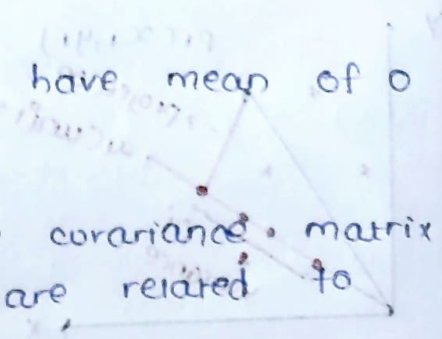 have mean of 0
covariance matrix
are related to